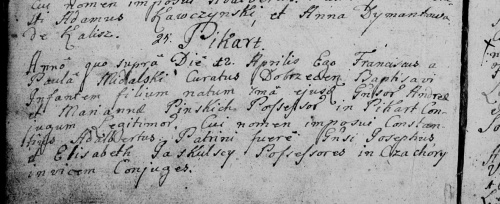 cui nomen imposui
sti Adamus Kawczynski, et Anna Dymantkowa
de Kalisz.
24. Pikart.
Anno quo supra Die 12. Aprilis Ego Franciscus a
Paula Michalski Curatus Dobrzecen. Baptisavi
Infantem filium natum 7ma ejusd: Gnsor Andreæ
et Mariannæ Pinskich Possessor in Pikart Con-
jugum legitimor. Cui nomen imposui Constan-
tinus Adalbertus, Patrini fuere Gnsi Josephus
et Elisabeth Jaskulscy Possessores in Czachory
invicem Conjuges.